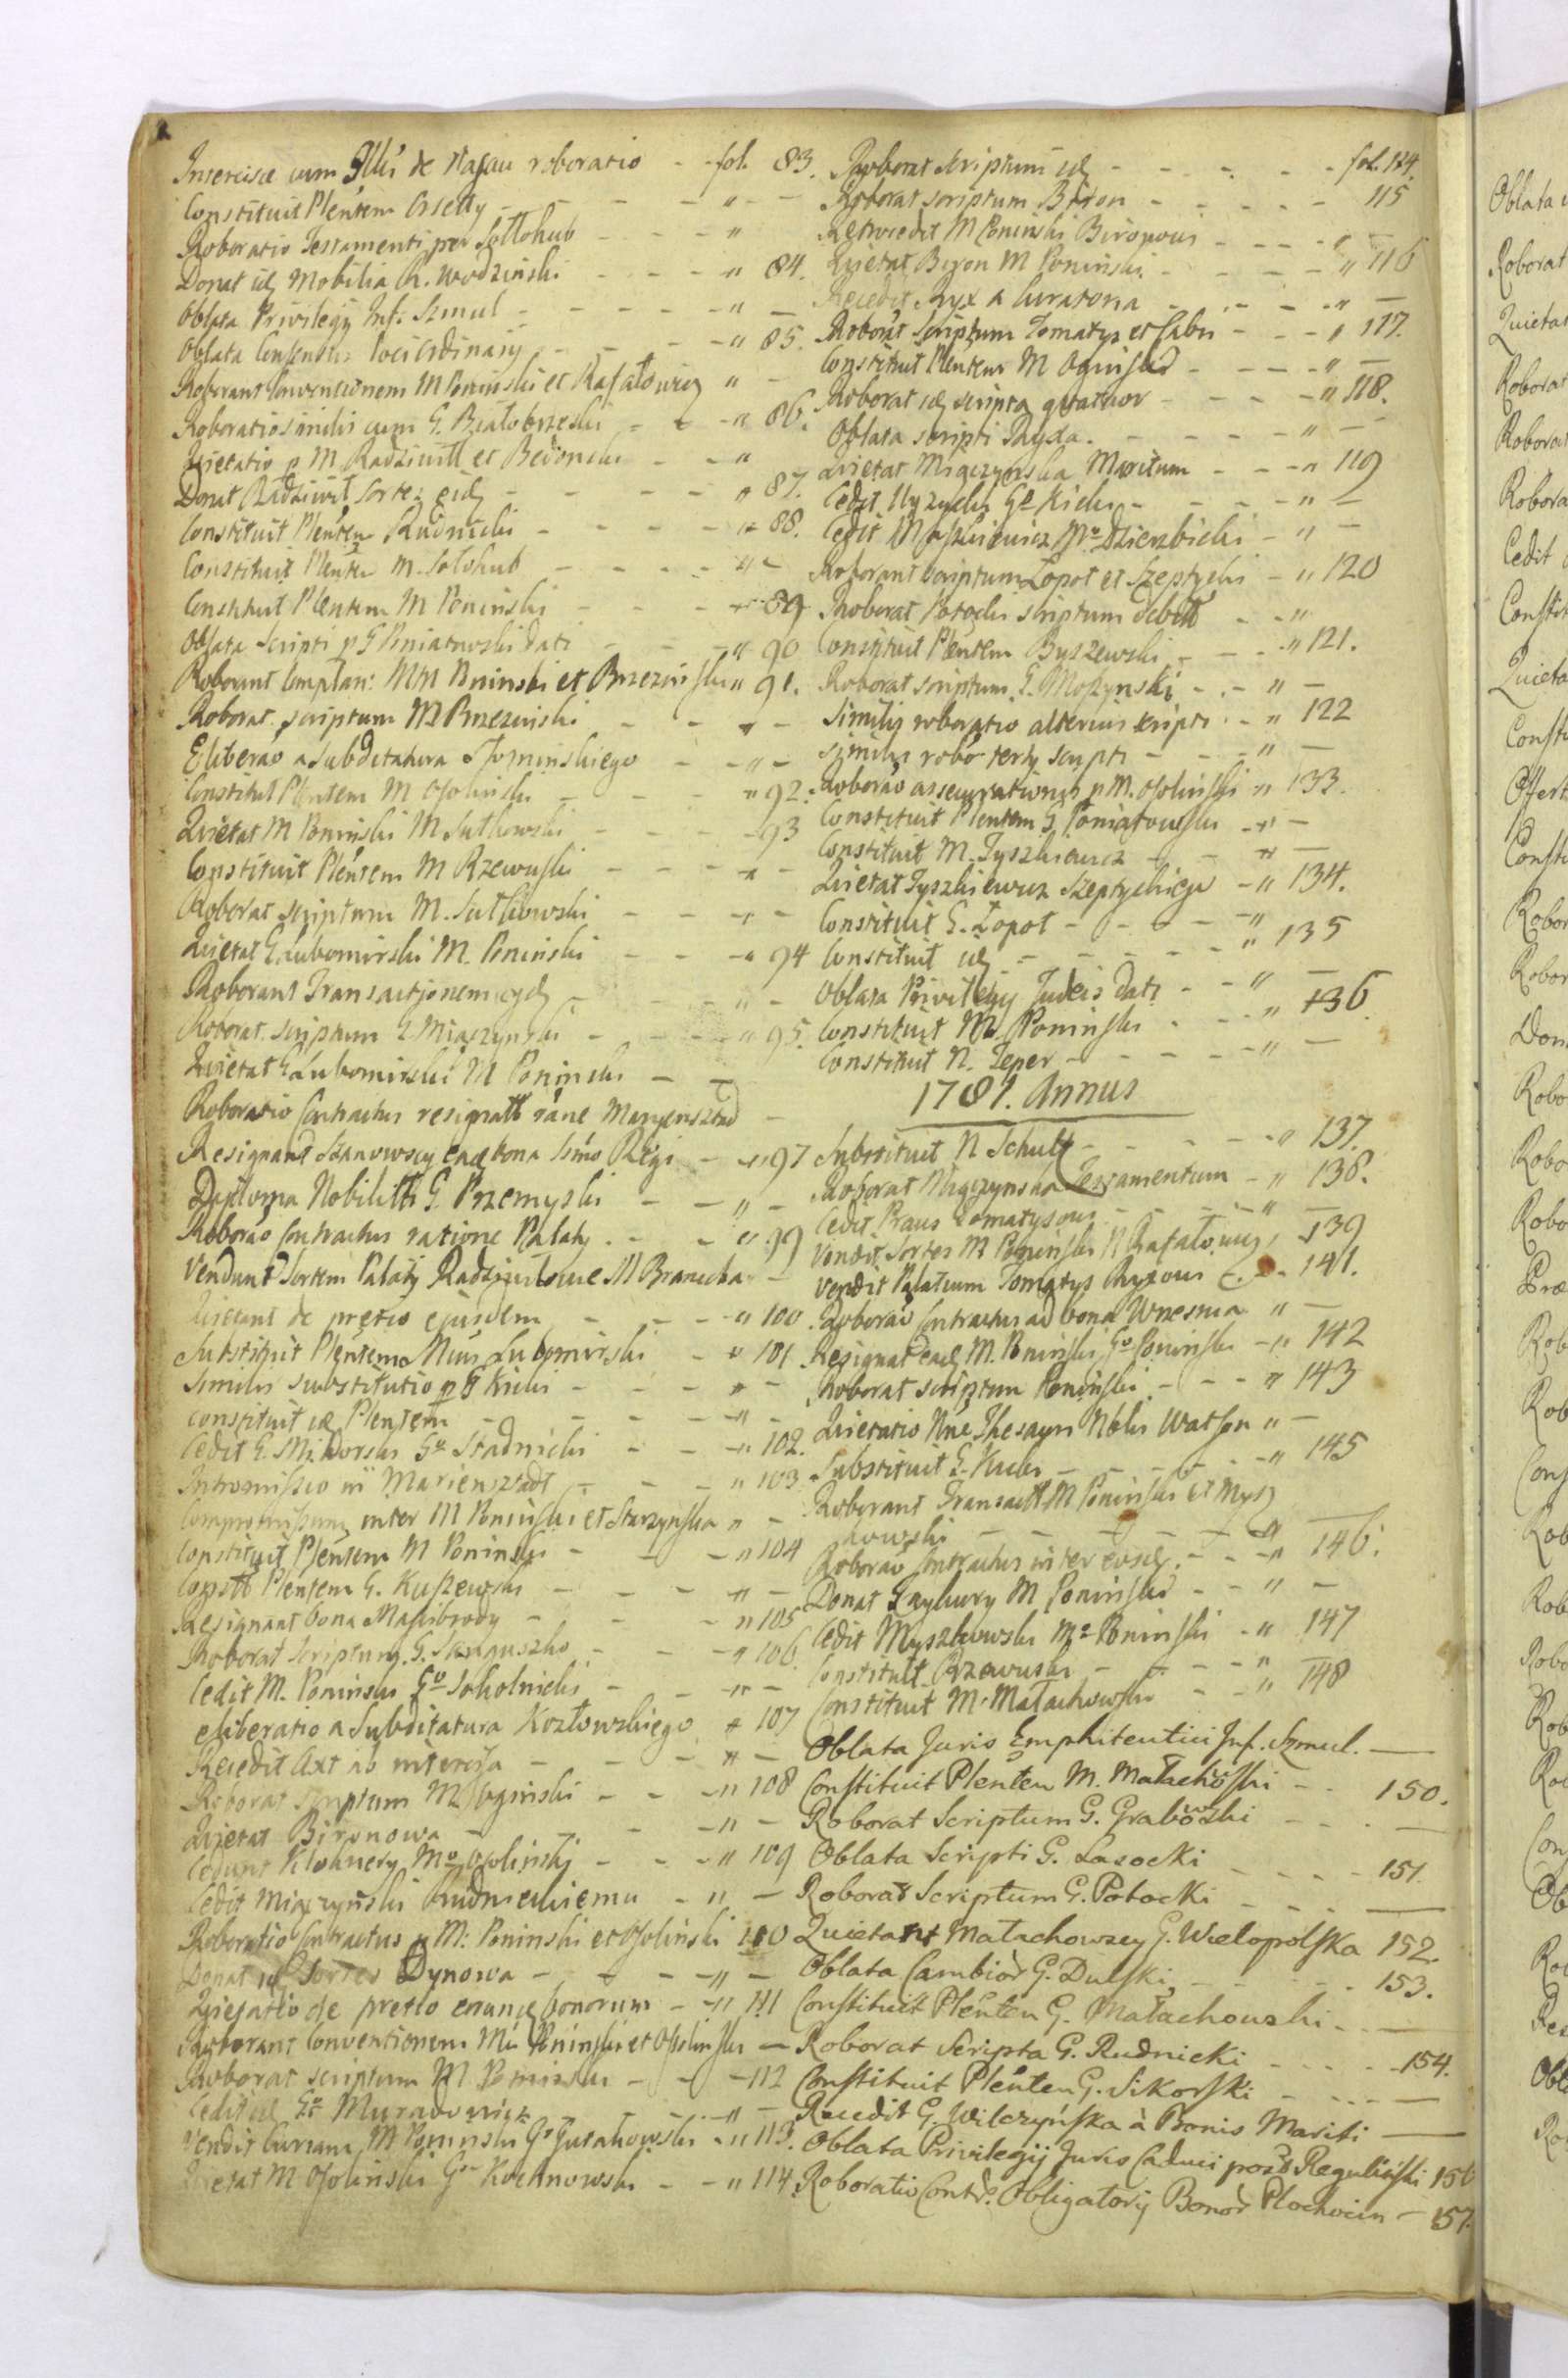 Intercisæ cum Illi de Nassau roboratio - - fol. 83.
Constituit Plentem Ossetty - - - - " - -
Roboratio Testamenti per Sołłohub - - - "
Donat id Mobilia R. Wodzinski - - - " 84.
Oblata Privilegij Inf. Szmul - - - - " -
Oblata Consensus loci Ordinarij - - - " 85.
Roborant Conventionem M Poninski et Rafałowicz " -
Roboratio similis cum G. Białobrzeski - - - " 86.
Quietatio p M Radziwiłł et Bedonski - - "
Donat Radziwił sortes eid - - - - " 87.
Constituit Plentem Rudnicki - - - - " 88.
Constituit Plentem M. Solohub - - - - " -
Constituit Plentem M Poninski - - - - " 89
Oblata Scripti p G Poniatowski dati - - - " 90
Roborant Complan: MM Poninski et Brzezinski " 91.
Roborat scriptum M Brzezinski - - - " -
Eliberao a Subditatura Słominskiego - - " -
Constituit Plentem M Ossolinski - - - " 92.
Quietat M Poninski M Sułkowski - - - - 93
Constituit Plentem M Rzewuski - - - - " -
Roborat scriptum M. Sułkowski - - - " -
Quietat G Lubomirski M. Poninski - - - " 94
Roborant Transactjonem eid - - - - " -
Roborat scriptum G Miączynski - - - - " 95.
Quietat G Lubomirski M Poninski - -
Roboratio Contractus resignatt rãne Maryensztad -
Resignant Szanowscy ead bona Ssmo Regi - - " 97
Diploma Nobilitt G Przemyski - - - " -
Roborao Contractus ratione Palaty. - - " 99
Vendunt Sortem Palatij Radziwiłłowie M Branicka -
Quietant de pretio ejusdem - - - - " 100
Substituit Plentem Mnus Lubomirski - " 101
Similis substitutio p G Kicki - - - " -
constituit id Plentem - - - - " -
Cedit G. Sikorski Go Stadnicki - - - " 102.
Intromissio in Mariensztadt - - - " 103
Compromissum inter M Poninski et Starzynska " -
Constituit Plentem M Poninski - - - " 104
Constt Plentem G. Kuszewski - - - " -
Resignant bona Massibrody - - - " 105
Roborat Scriptum G. Sanguszko - - - " 106.
Cedit M. Poninski Go Sokolnicki - - - " -
eliberatio a Subditatura Kozłowskiego " 107
Recedit Axt ab interciza - - - - " -
Roborat scriptum M Oginski - - - " 108
Quietat Bironowa - - - - - " -
Cedunt Klohnery Mo Ossolinski - - - " 109
Cedit Miączyński Rudnickiemu - " -
Roboratio Contractus p M: Poninski et Ossolinski 110
Donat id Sortes Dynowa - - - - " -
Quietatio de pretio eorund bonorum - " 111
Roborant Conventionem Mi Poninski et Ossolinski -
Roborat scriptum M Poninski - - - 112
Cedit id Go Muradowicz - - - " -
Vendit Curiam M Poninski Go Gutakowski - " 113.
Quietat M Ossolinski Go Kochnowski - - " 114.
Roborat scriptum id - - - - - fol. 124.
Roborat scriptum Biron - - - - - 115
Retrocedit M Poninski Bironowi - - - - " -
Quietat Biron M Poninski - - - - - " 116
Recedit Ryx a Curatoria - - - - " -
Roborat Scriptum Tomatys et Fabri - - - " 117.
Constituit Plentem M Oginski - - - - " -
Roborat id scripta quatuor - - - - " 118.
Oblata scripti Ryxa. - - - - - " -
Quietat Miączynska Maritum - - - " 119
Cedit Uyzycki Go Kicki - - - - " -
Cedit Moszkiewicz Mo Dzierzbicki - " -
Roborant scriptum Łopot et Szeptycki - " 120
Roborat Potocki scriptum debitt - - "
Constituit Plentem Byszewski - - - " 121.
Roborat scriptum G. Moszynski - - - " -
Similis roboratio alterius scripti - - " 122
Similis robo tertij scripti - - - - " -
Roborao assecurationis p M. Ossolinski " 133.
Constituit Plentem G Poniatowski - " -
Constituit M. Tyszkiewicz - - - " -
Quietat Tyszkiewicz Szeptyckiego - " 134.
Constituit G. Łopot - - - - - "
Constituit id - - - - - " 135
Oblata Privilegij Judeis dati - - " -
Constituit M Poninski - - - " 136.
Constituit N. Teper - - - - - " -
1781. Annus
Substituit N Schultz - - - - - " 137.
Roborat Miączynska Testamentum - " 138.
Cedit Praus Tomatysowi - - - - " -
Vendit Sortes M Poninski N Rafałowicz, 139
Vendit Palatium Tomatys Ryxowi - - - 141.
Roborao Contractus ad bona Wrzesnia " -
Resignat ead M. Poninski Go Poninski - " 142
Roborat scriptum Poninski - - - " 143
Quietatio Nne Thesauri Nblis Watson " -
Substituit G. Kicki - - - - - " 145
Roborant Transactt M Poninski et Mysz
kowski - - - - - - " -
Roborao Contractus inter eosd. - - - " 146.
Donat Zaybury M Poninski - - " -
Cedit Myszkowski Mo Poninski - " 147
Constituit Rzewuski - - - - - "
Constituit M. Małachowski - - " 148
Oblata Juris Emphiteutici Inf. Szmul. -
Constituit Plenten M. Małachoski - - 150.
Roborat Scriptum G. Grabowski - - - -
Oblata Scripti G. Lasocki - - - - 151.
Roborat Scriptum G. Potocki - - - -
Quietant Małachowscy G. Wielopolska 152.
Oblata Cambior G. Dulski - - - - 153.
Constituit Plenten G. Małachowski - - -
Roborat Scripta G. Rudnicki - - - - 154.
Constituit Plenten G. Sikorski - - - -
Recedit G. Wilczyńska à Bonis Mariti -
Oblata Privilegij Juris Caduci post Regulinski 156
Roboratio Contr. Obligatorij Bonor Płochocin - 157.
Oblata
Roborat
Quietat
Roborat
Roborat
Robora
Cedit
Constit
Quieta
Consti
Offert
Consti
Robor
Robor
Don
Robo
Robo
Robo
Præ
Rob
Rob
Cons
Rob
Rob
Robo
Rob
Ro
Con
Ob
Ro
Res
Obl
Ro